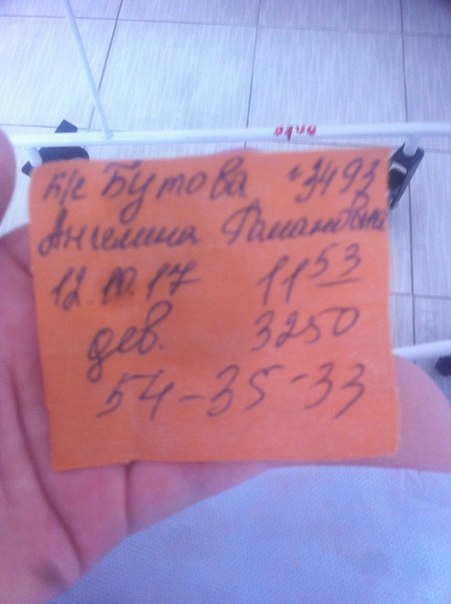 Б/с Бутова №3493
Ангелина Романовна
12.10.17 11 53
дев. 3250
54-35-33